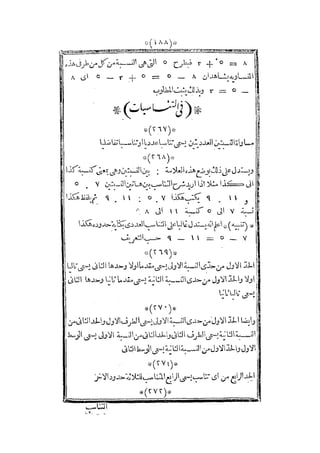 *(١٨٨)*
٨ = ٥ + ٣ فبطرح ٥ التي هي النسبة من كل من طرفي هذه
المتساوية يشاهد ان ٨ - ٥ = ٥ + ٣ - ٥ اى ٨
- ٥ = ٣ وبذلك يثبت المطلوب
*(في التناسبات)*
*(٢٦٧)*
مساواة النسبتين العدديتين يسمى تناسبا عدديا او تناسبا تفاضليا
*(٢٦٨)*
ويستدل على ذلك بوضع هذه العلامة : بين النسبتين وهى بمعنى كنسبة كذا
الى كذا مثلا اذا اريد شرح التناسب بين هاتين النسبتين ٧ . ٥
و ١١ . ٩ يكتب هكذا ٧ . ٥ : ١١ . ٩ ثم يلفظ هكذا
نسبة ٧ الى ٥ كنسبة ١١ الى
*(تنبيه)* اعلم انه يستدل غالبا على التناسب العددى بكتابة حدوده هكذا
٧ - ٥ = ١١ - ٩ حسب التعريف
*(٢٦٩)*
الحد الاول من حدى النسبة الاولى يسمى مقدما اولا وحدها الثانى يسمى تاليا
اولا والحد الاول من حدى النسبة الثانية يسمى مقدما ثانيا وحدها الثانى
يسمى تاليا ثانيا
*(٢٧٠)*
وايضا الحد الاول من حدى النسبة الاولى يسمى الطرف الاول والحد الثانى من
النسبة الثانية يسمى الطرف الثانى والحد الثانى من النسبة الاولى يسمى الوسط
الاول والحد الاول من النسبة الثانية يسمى الوسط الثانى
*(٢٧١)*
الحد الرابع من اى تناسب يسمى الرابع المتناسب للثلاثة حدود الاخر
*(٢٧٢)*
التناسب